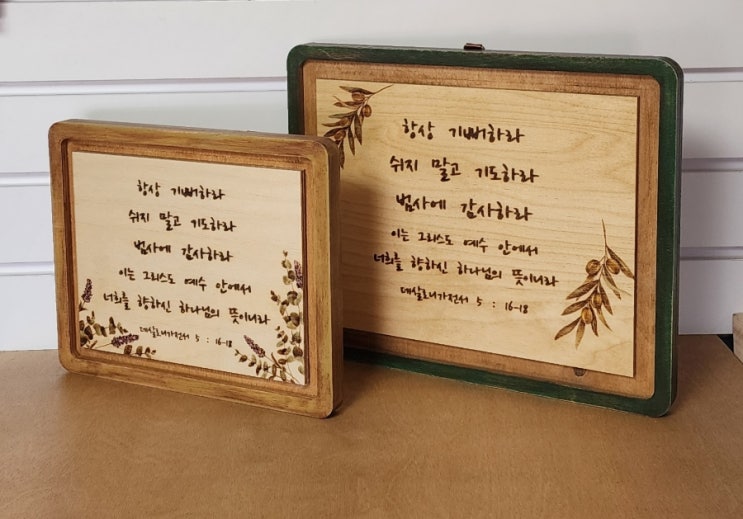 항상 기뻐하라
쉬지 말고 기도하라
범사에 감사하라
이는 그리스도 예수 안에서
너희를 향하신 하나님의 뜻이니라
데살로니가전서 5 : 16-18
항상 기뻐하라
쉬지 말고 기도하라
범사에 감사하라
이는 그리스도 예수 안에서
너희를 향하신 하나님의 뜻이니라
데살로니가전서 5 : 16-18